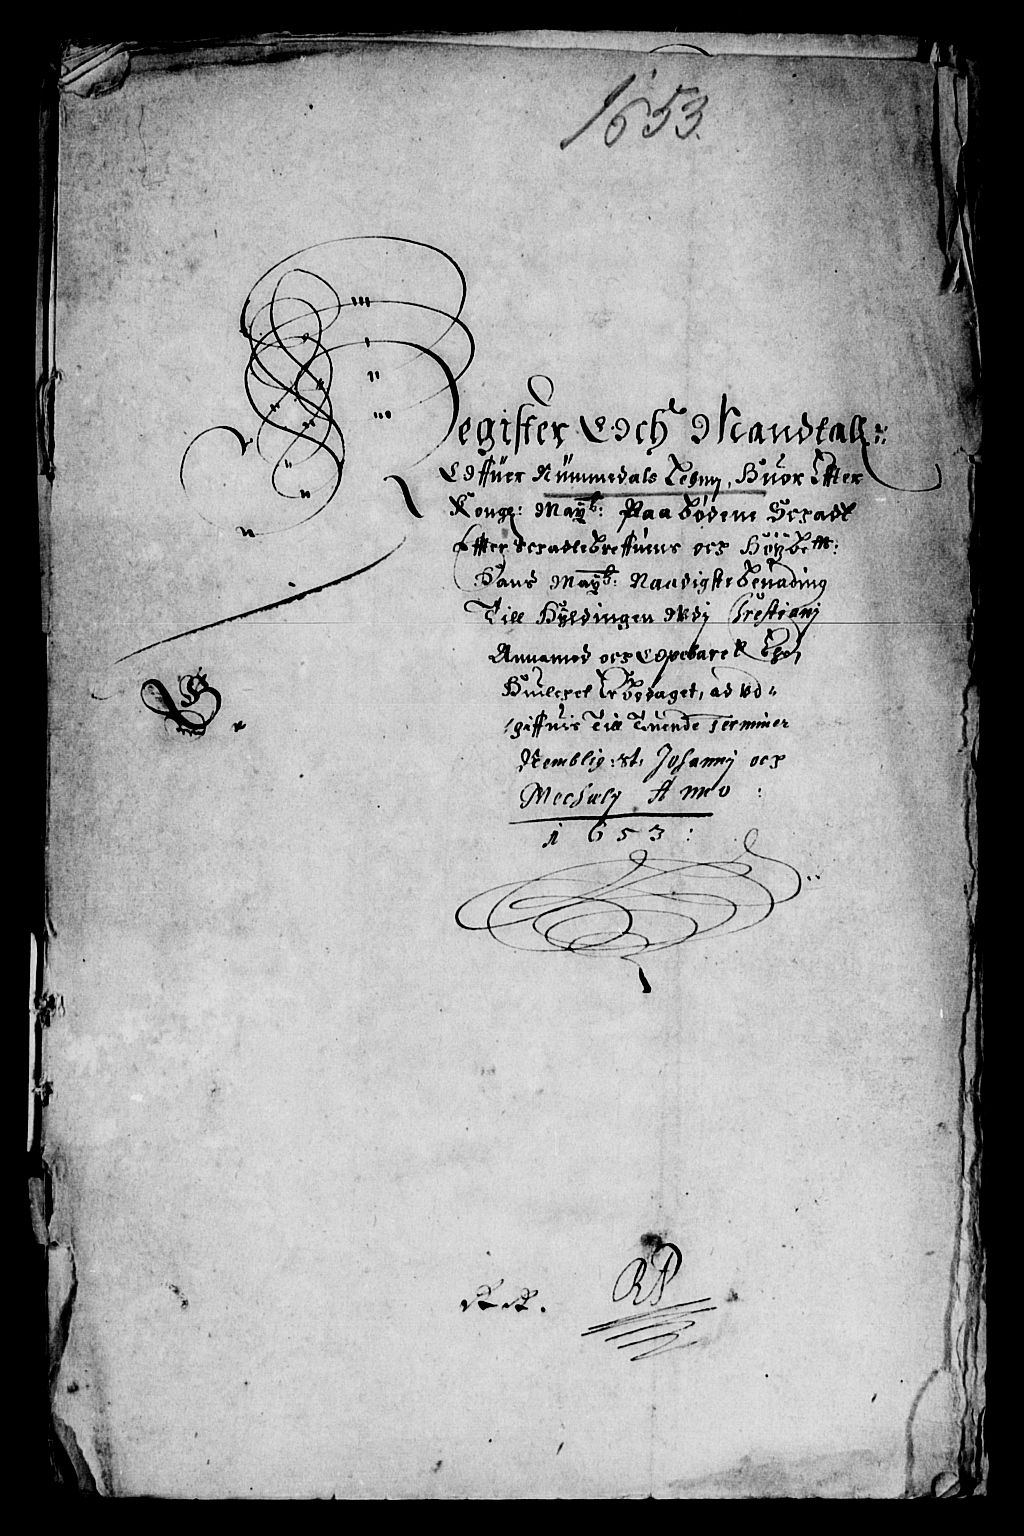 1653.
Register Och Mandtall:
Offuer Nummedals Lehnn, Huor Effter
Kongl: Mayts: Paa bødene Schadt
Effter Schadtebreffuens och Høyb
Hans Mayts: Naadigste benading
Till Hyldingen Udj Chrestianj
Annamed och Openbaret
Huilchet Er Opdaget, at ud-
giffuis Till Tuende Terminer
Nemblig: St, Johannj och
Mechaely Anno :
1653 :